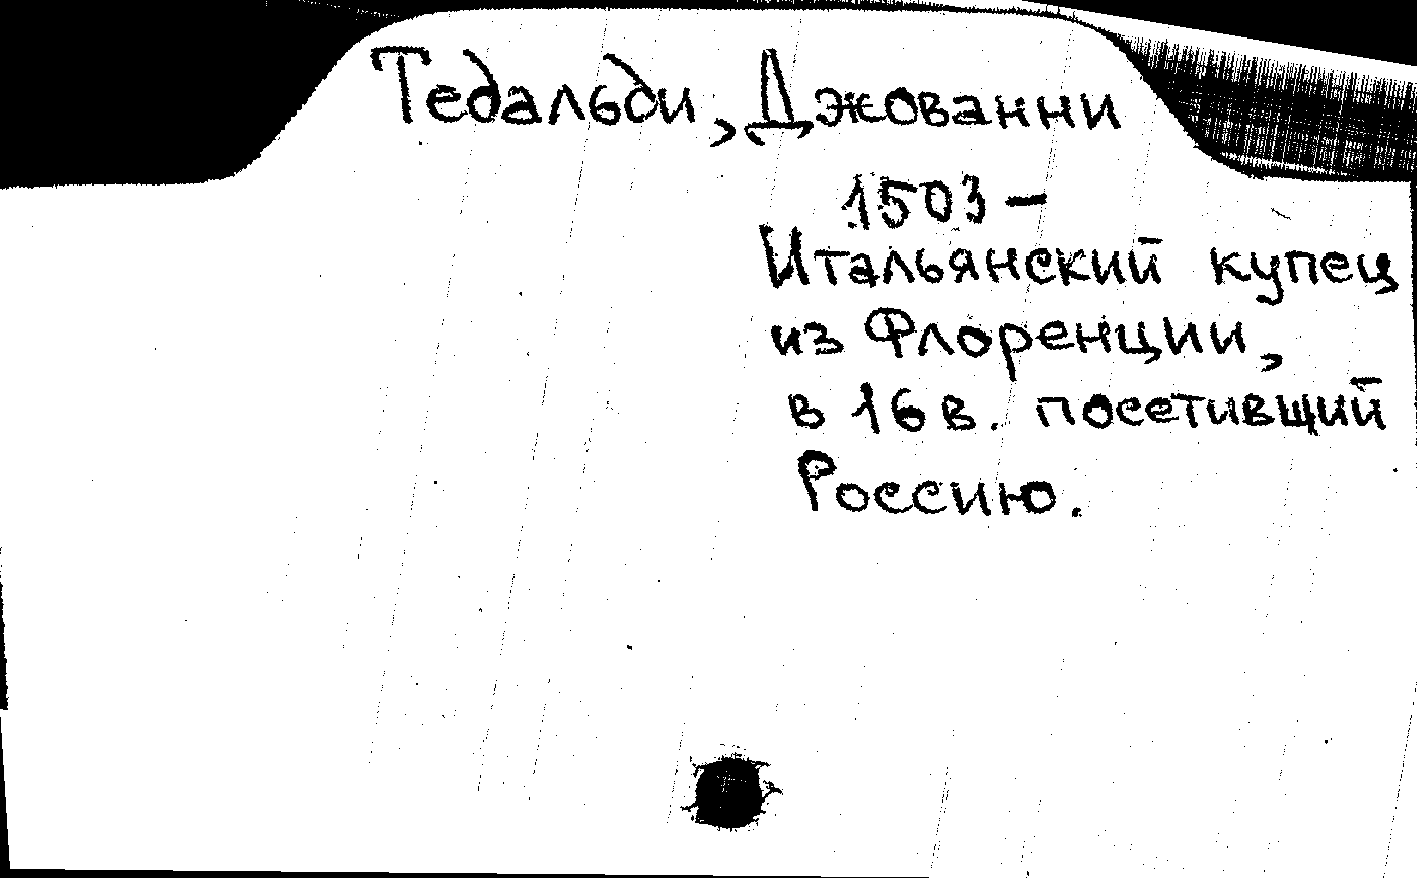 Тедальди, Джованни
1503 –
Итальянский купец
из Флоренции,
в 16 в. посетивший
Россию.